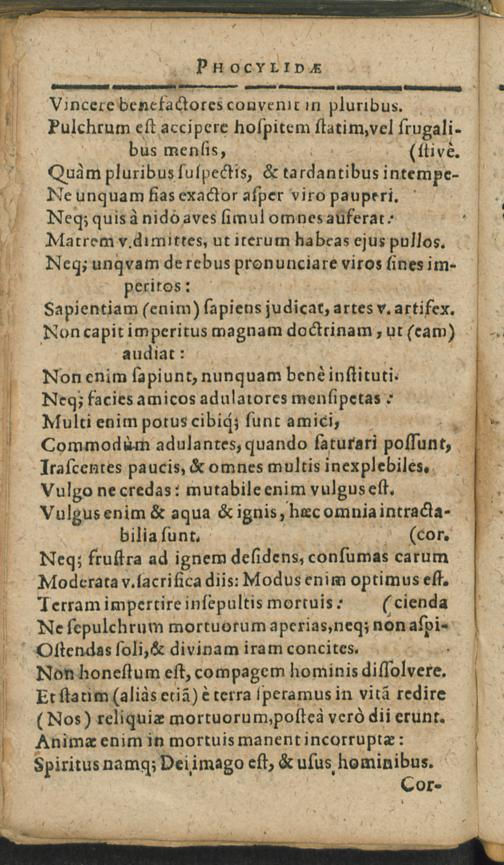 PHOCYLIDÆ
Vincere benefactores convenit in pluribus.
Pulchrum eſt accipere hoſpitem ſtatim,vel frugali-
bus menſis, (ſtivè.
Quàm pluribus ſuſpectis, & tardantibus intempe-
Ne unquam fias exactor aſper viro pauperi.
Neq; quis à nido aves ſimul omnes auferat:
Matrem v.dimittes, ut iterum habeas ejus pullos.
Neq; unqvam de rebus pronunciare viros ſines im-
peritos:
Sapientiam (enim) ſapiens judicat, artes v. artifex.
Non capit imperitus magnam doctrinam, ut (eam)
audiat:
Non enim ſapiunt, nunquam benè inſtituti.
Neq; facies amicos adulatores menſipetas:
Multi enim potus cibiq́; ſunt amici,
Commodùm adulantes, quando ſaturari poſſunt,
Iraſcentes paucis, & omnes multis inexplebiles.
Vulgo ne credas: mutabile enim vulgus eſt.
Vulgus enim & aqua & ignis, hæc omnia intracta-
bilia ſunt. (cor.
Neq; fruſtra ad ignem deſidens, conſumas carum
Moderata v.ſacrifica diis: Modus enim optimus eſt.
Terram impertire inſepultis mortuis: (cienda
Ne ſepulchrum mortuorum aperias,neq; non aſpi-
Oſtendas ſoli,& divinam iram concites.
Non honeſtum eſt, compagem hominis diſſolvere.
Et ſtatim (aliàs etiã) è terra ſperamus in vitã redire
(Nos) reliquiæ mortuorum,poſteà verò dii erunt.
Animæ enim in mortuis manent incorruptæ:
Spiritus namq; Dei,imago eſt, & uſus hominibus.
Cor-